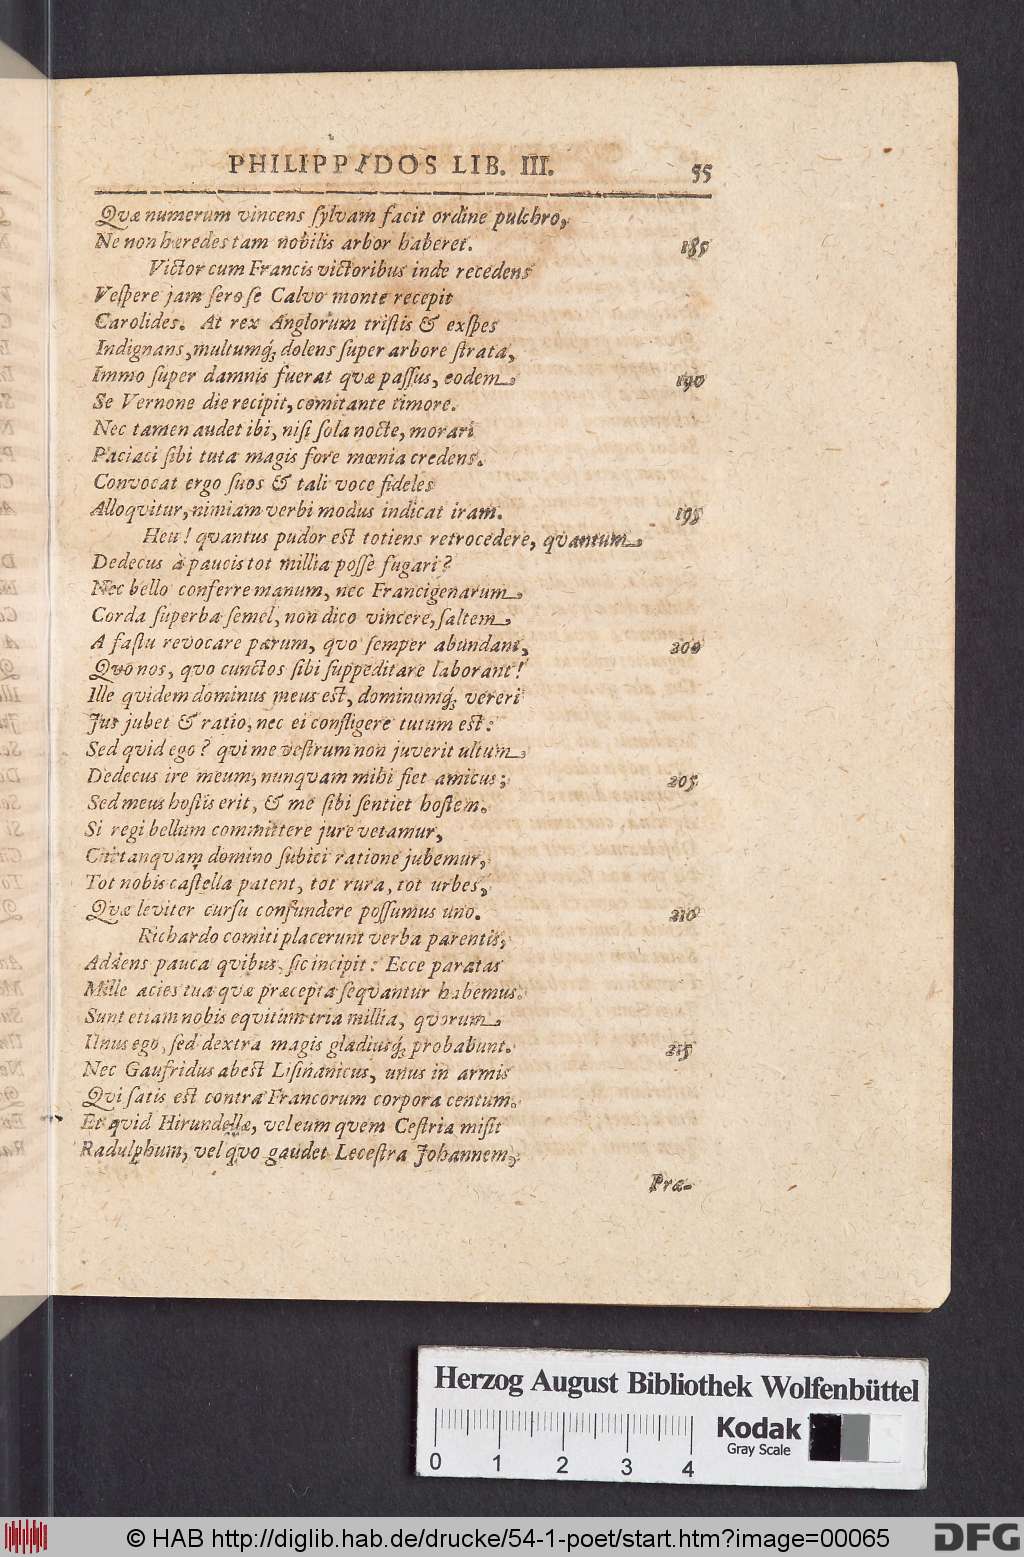 PHILIPPIDOS LIB. III. 55
Qvæ numerum vincens ſylvam facit ordine pulchro,
Ne non hæredes tam nobilis arbor haberet. 185
Victor cum Francis victoribus inde recedens
Veſpere jam ſero ſe Calvo monte recepit
Carolides. At rex Anglorum triſtis & exſpes
Indignans, multumq́; dolens ſuper arbore ſtrata,
Immo ſuper damnis fuerat qvæ paſſus, eodem 190
Se Vernone die recipit, comitante timore.
Nec tamen audet ibi, niſi ſola nocte, morari
Paciaci ſibi tuta magis fore mœnia credens.
Convocat ergo ſuos & tali voce fideles
Alloqvitur, nimiam verbi modus indicat iram. 195
Heu! qvantus pudor est totiens retrocedere, qvantum
Dedecus à paucis tot millia poſſe fugari?
Nec bello conferre manum, nec Francigenarum
Corda ſuperba ſemel, non dico vincere, ſaltem
A faſtu revocare parum, qvo ſemper abundant, 200
Qvo nos, qvo cunctos ſibi ſuppeditare laborant!
Ille qvidem dominus meus est, dominumq́; vereri
Jus jubet & ratio, nec ei confligere tutum est:
Sed qvid ego? qvi me veſtrum non juverit ultum
Dedecus ire meum, nunqvam mihi fiet amicus; 205
Sed meus hoſtis erit, & me ſibi ſentiet hoſtem.
Si regi bellum committere jure vetamur,
Cui tanqvam domino ſubici ratione jubemur,
Tot nobis caſtella patent, tot rura, tot urbes,
Qvæ leviter curſu confundere poſſumus uno. 210
Richardo comiti placerunt verba parentis,
Addens pauca qvibus, ſic incipit: Ecce paratas
Mille acies tua qvæ præcepta ſeqvantur habemus.
Sunt etiam nobis eqvitum tria millia, qvorum
Unus ego, ſed dextra magis gladiusq́; probabunt. 215
Nec Gaufridus abest Liſinanicus, unus in armis
Qvi ſatis est contra Francorum corpora centum.
Et qvid Hirundellæ, vel eum qvem Ceſtria miſit
Radulphum, vel qvo gaudet Leceſtra Johannem,
Præ-
Herzog August Bibliothek Wolfenbüttel
0 1 2 3 4
Kodak
Gray Scale
© HAB http://diglib.hab.de/drucke/54-1-poet/start.htm?image=00065
DFG